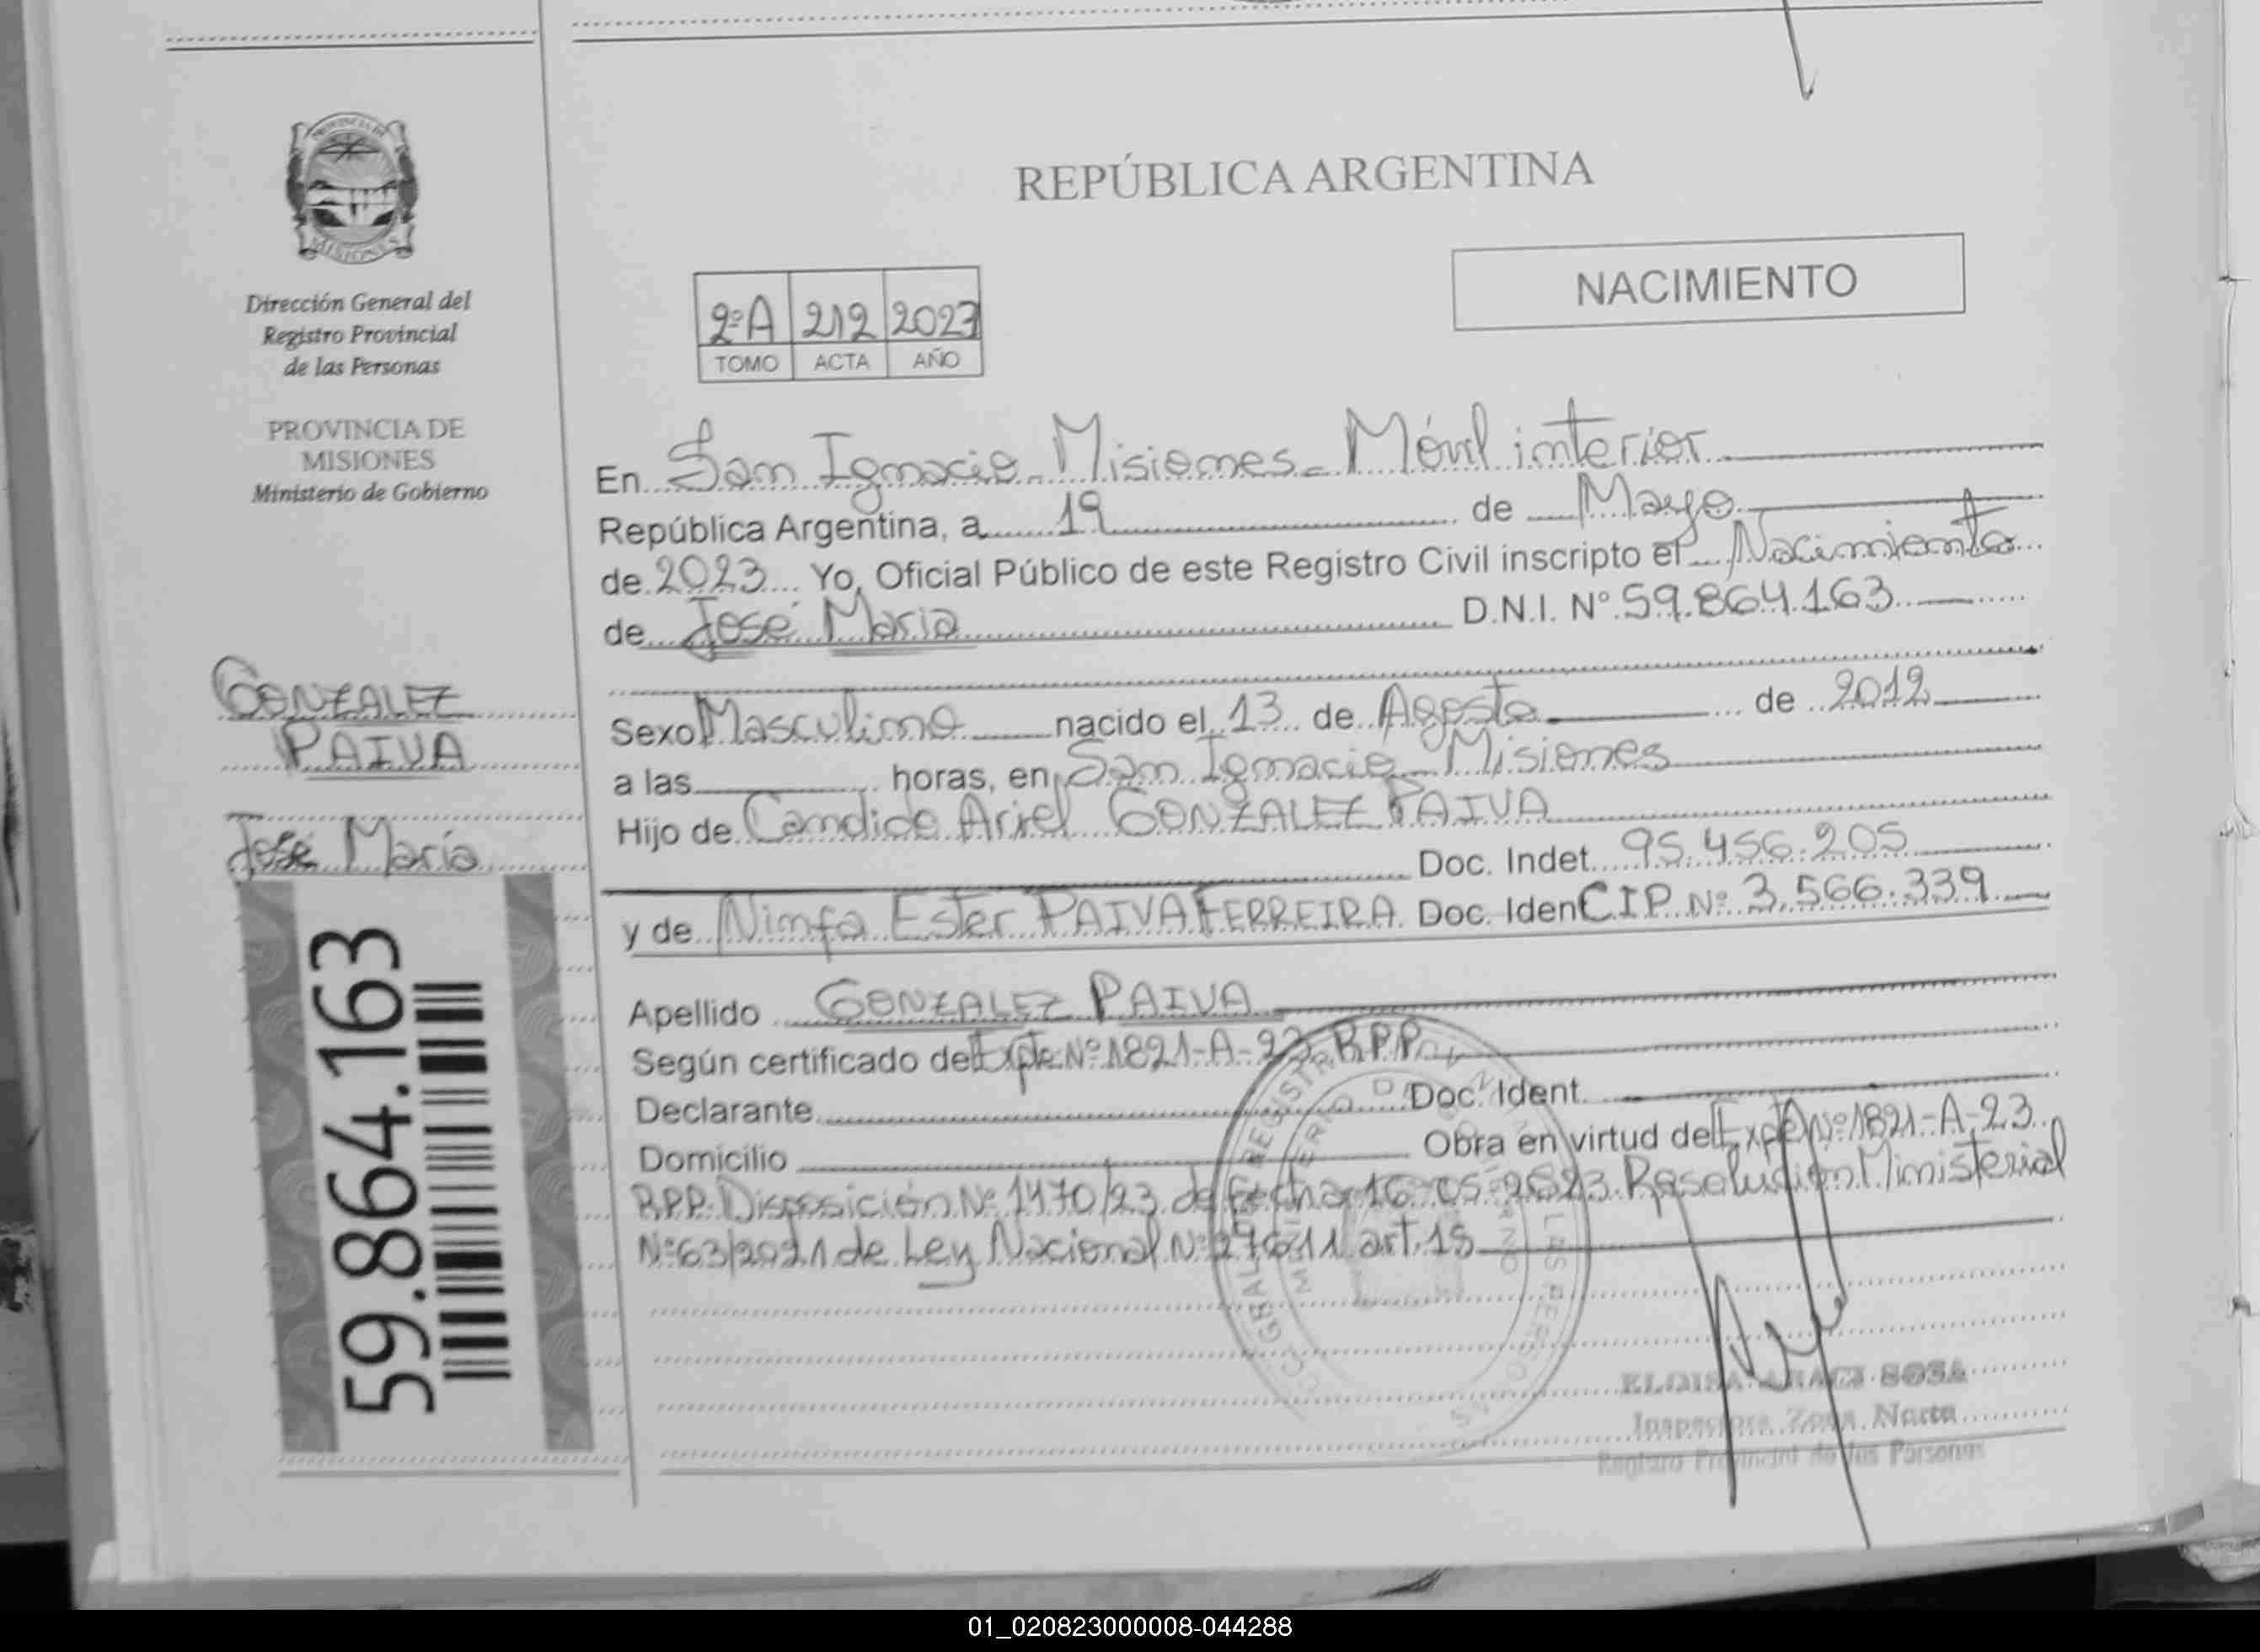 REPÚBLICA ARGENTINA
NACIMIENTO
2ºA 212 2023
TOMO ACTA AÑO
PROVINCIA DE
MISIONES
Dirección General del
Registro Provincial
de las Personas
PROVINCIA DE
MISIONES
Ministerio de Gobierno
GONZALEZ
PAIVA
José María
59.864.163
En San Ignacio - Misiones - Móvil interior
República Argentina, a 19 de Mayo
de 2023 Yo, Oficial Público de este Registro Civil inscripto el Nacimiento
de José María D.N.I. Nº 59.864.163
Sexo Masculino nacido el 13 de Agosto de 2012
a las horas, en San Ignacio - Misiones
Hijo de Candido Ariel GONZALEZ PAIVA
Doc. Indet. 95.456.205
y de Ninfa Ester PAIVA FERREIRA Doc. Iden CIP Nº 3.566.339
Apellido GONZALEZ PAIVA
Según certificado de Expte Nº 1821-A-23 RPP
Declarante Doc. Ident.
Domicilio Obra en virtud del Expte Nº 1821-A-23
RPP. Disposición Nº 1470/23 de fecha 16-05-2023 Resolución Ministerial
Nº 63/2021 de Ley Nacional Nº 27611 art. 15
ELOISA ARACI SOSA
Inspectora Zona Norte
Registro Provincial de las Personas
01_020823000008-044288